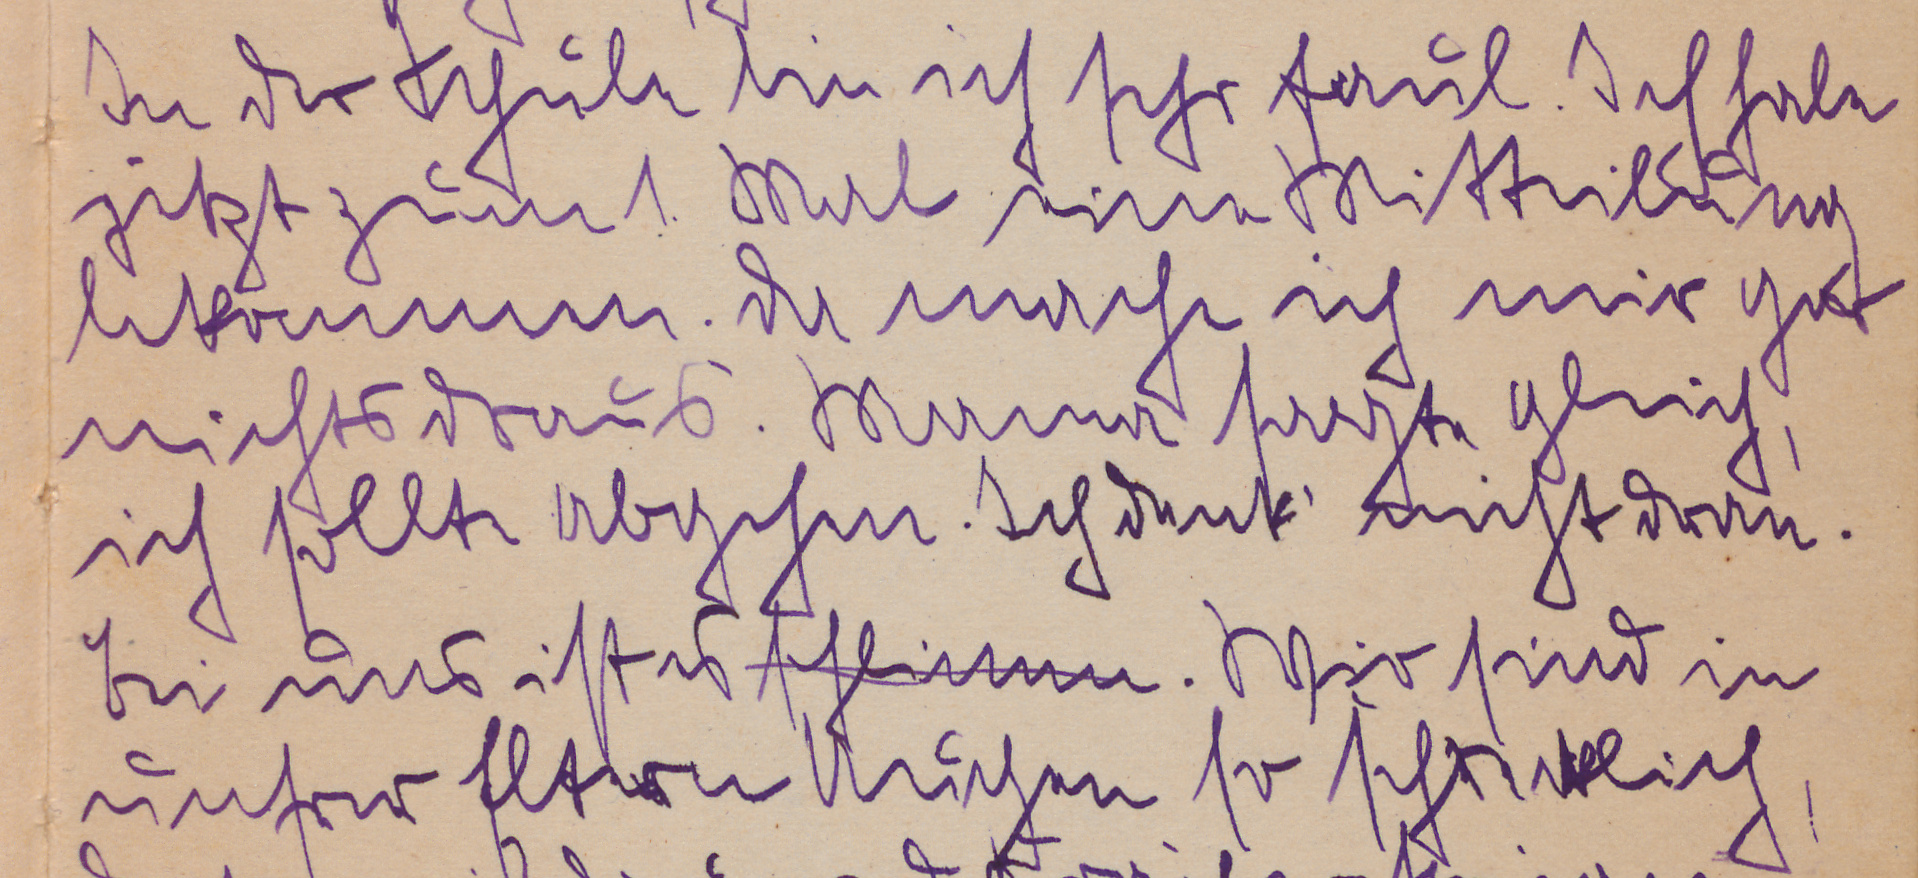 In der Schule bin ich sehr faul. Ich habe
jetzt zum 1. Mal eine Mitteilung
bekommen. Da mache ich mir gar
nichts draus. Mama sagte gleich,
ich sollte abgehen. Ich denk' nicht dran.
Bei uns ist es schlimm. Wir sind in
unsrer Eltern Augen so schrecklich,